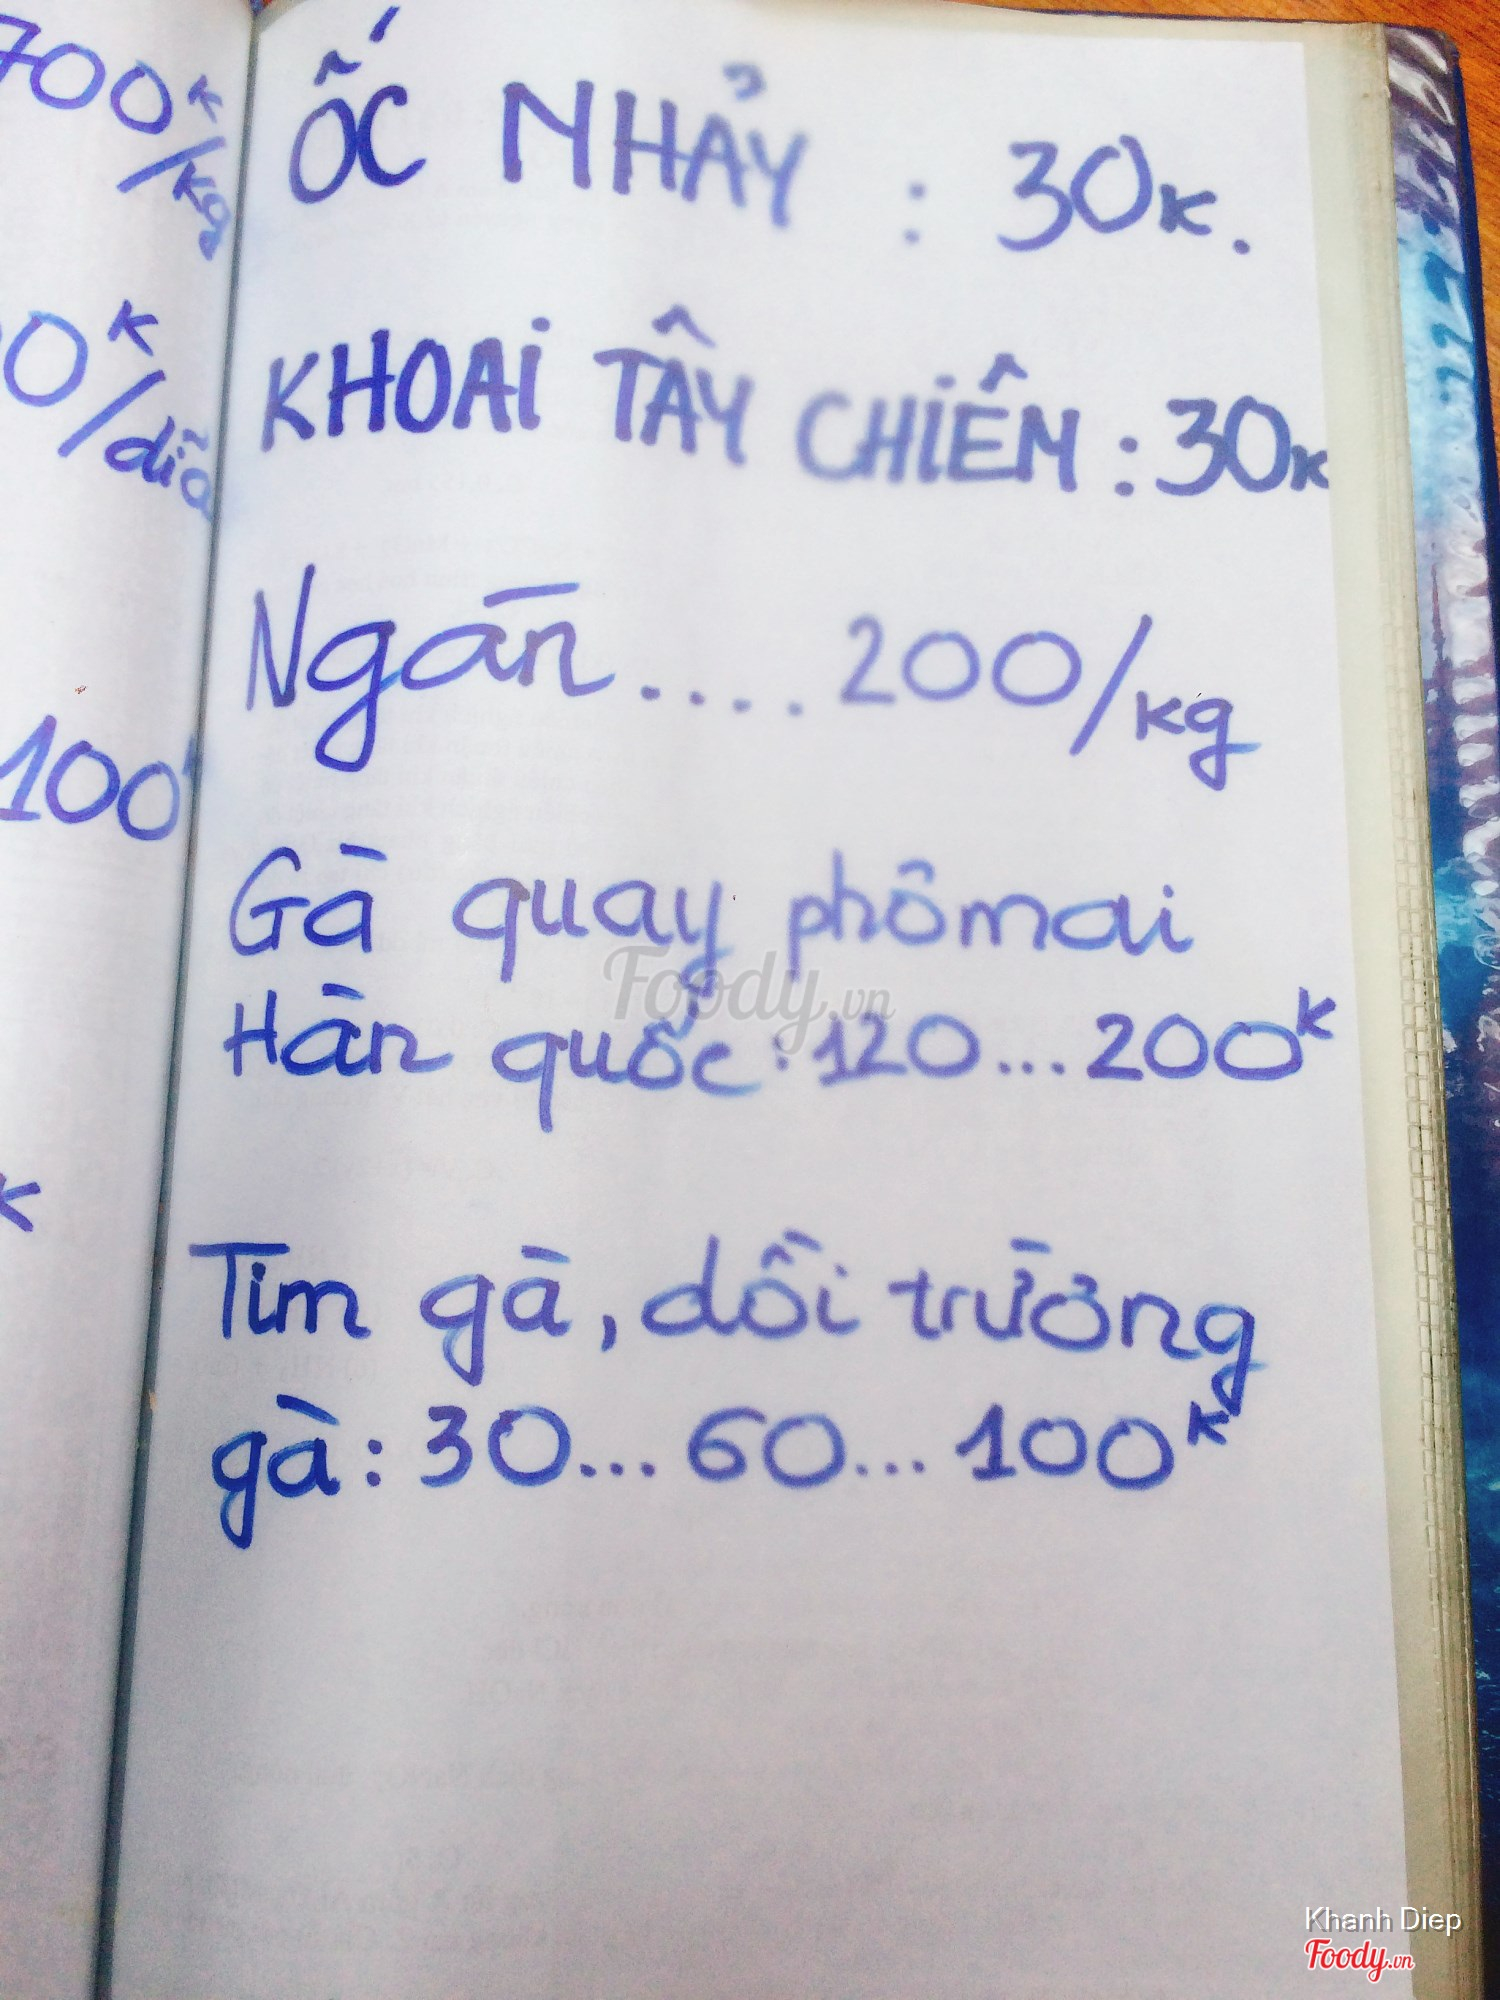 700K
/kg
0K
/dĩa
100K
K
ỐC NHẢY : 30K.
KHOAI TÂY CHIÊM : 30K
Ngán .... 200/kg
Gà quay phômai
Hàn quốc : 120 ... 200K
Tim gà, dồi trường
gà : 30 ... 60 ... 100K
Foody.vn
Khanh Diep
Foody.vn